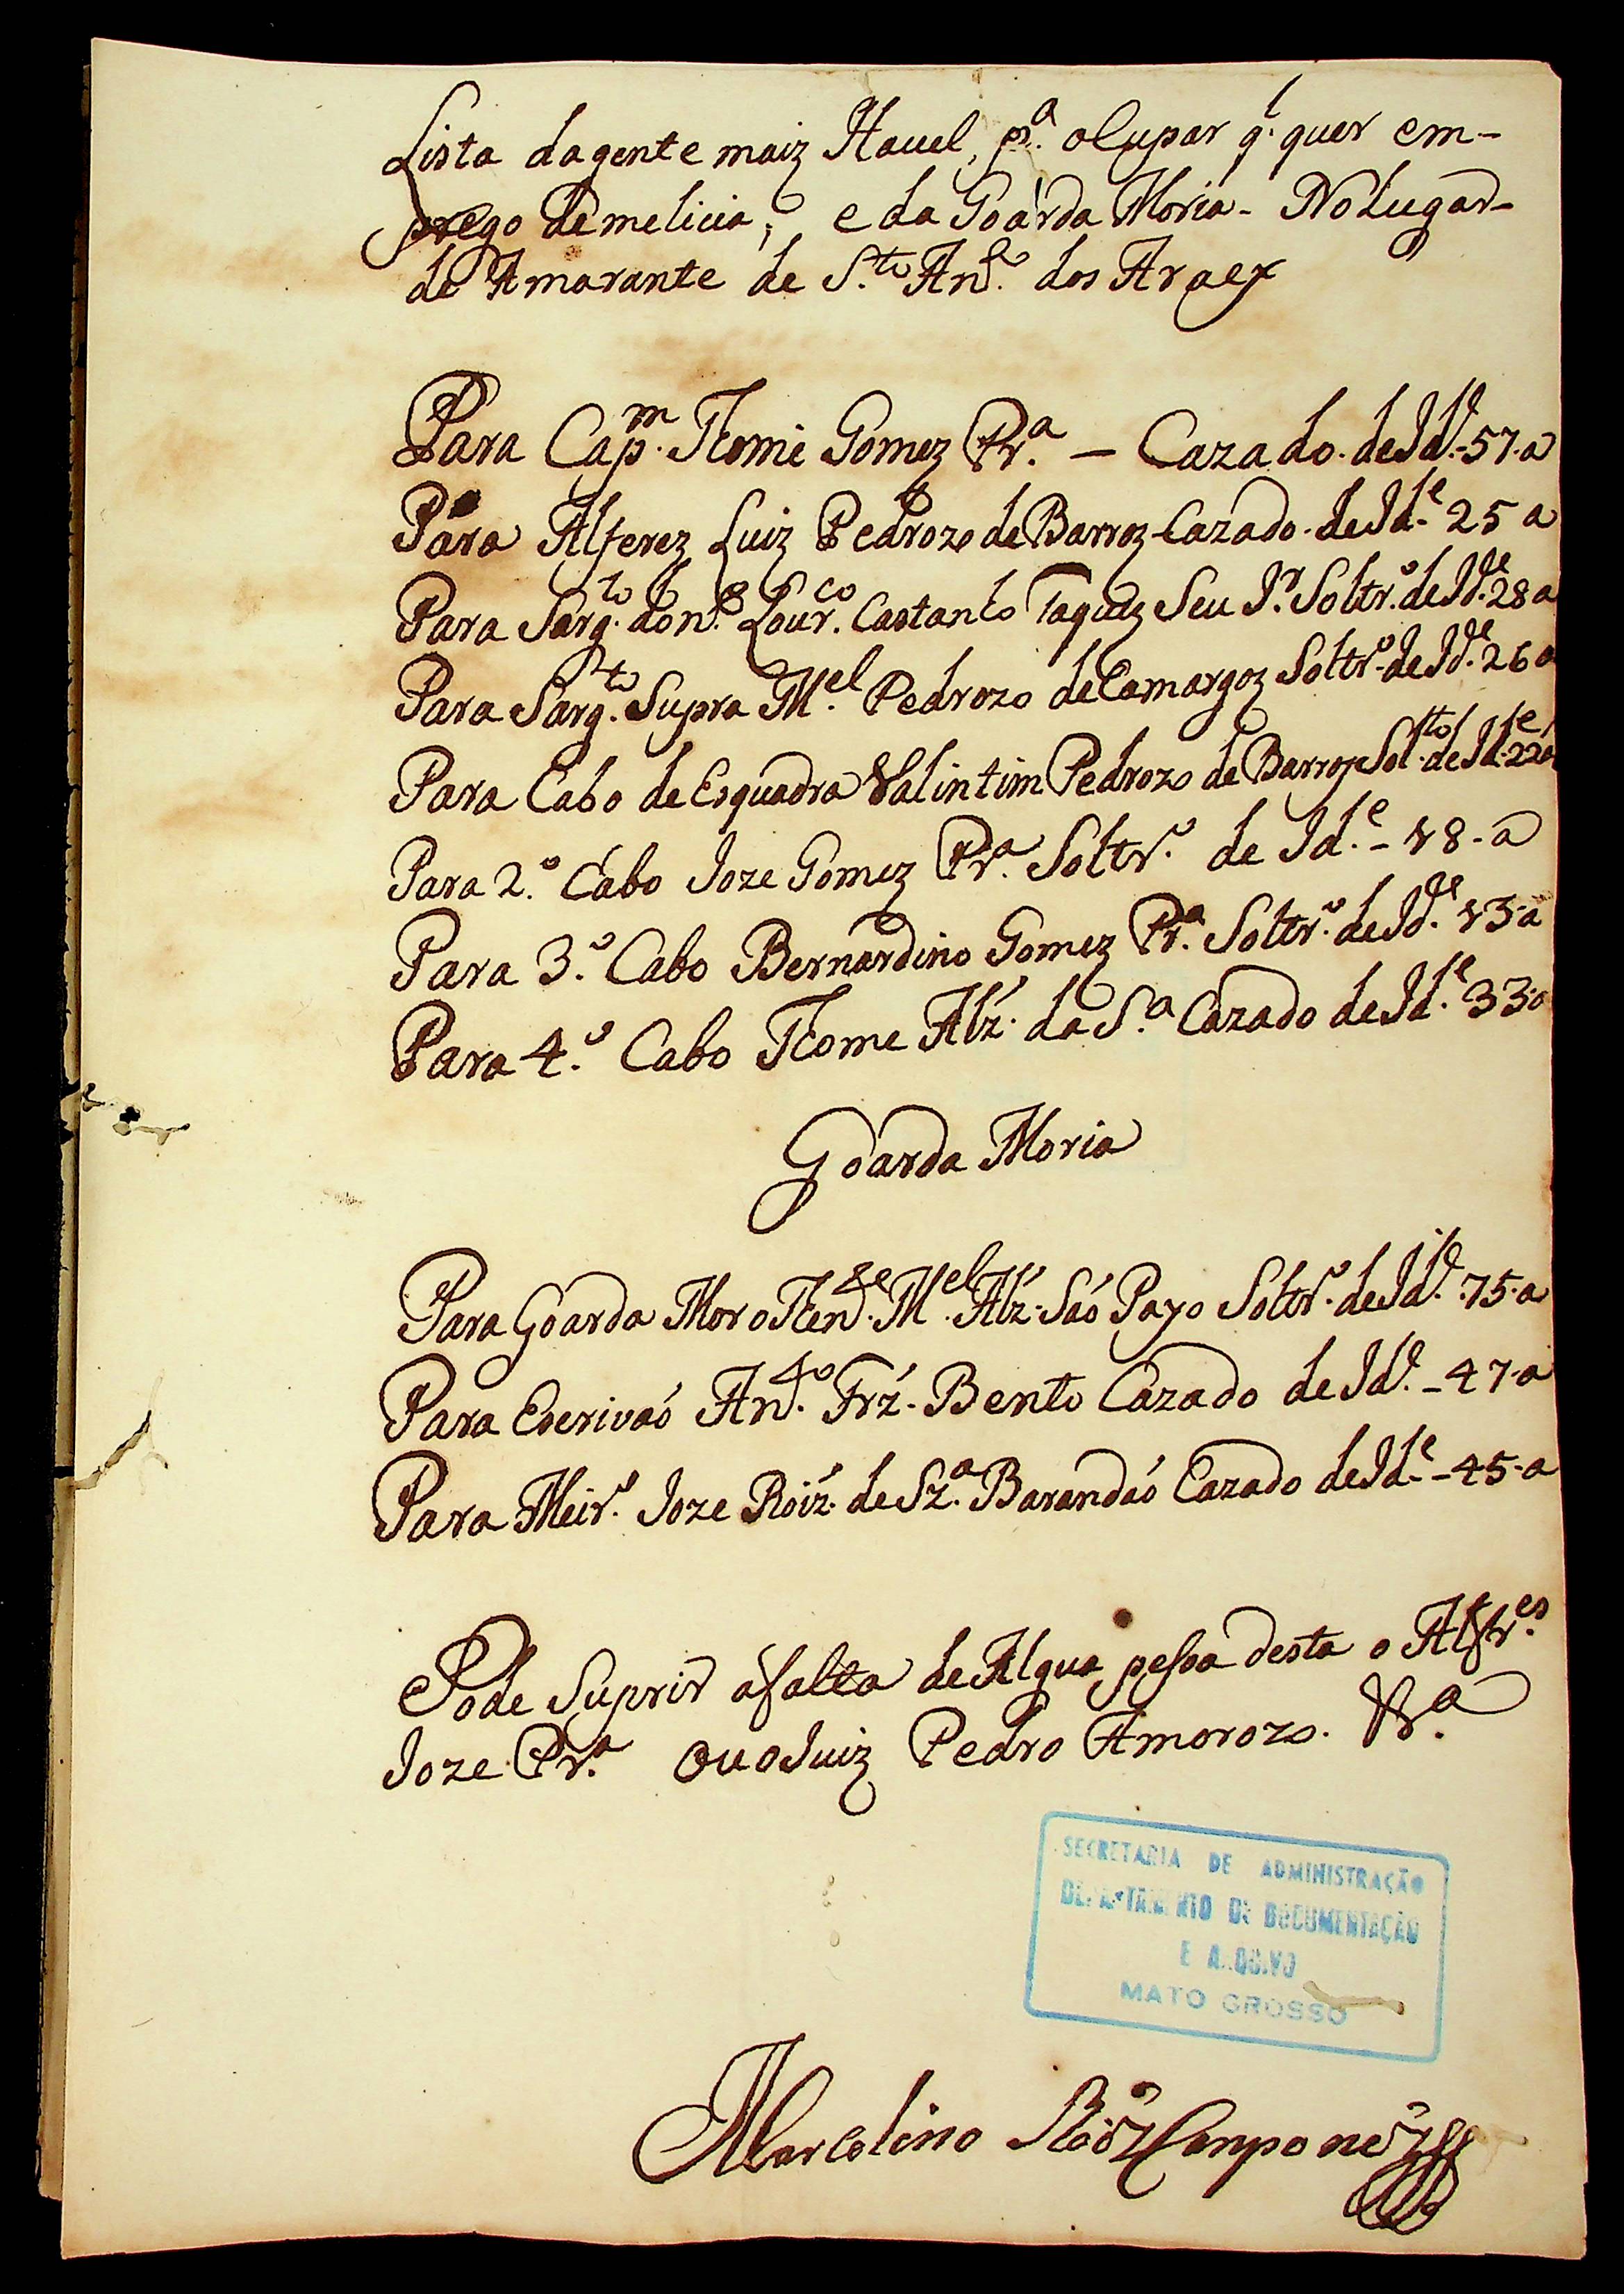 Lista dagente maiz Hauel, p.ª oCupar q.' quer em-
prego de melicia, e da Goarda Moria - No Lugar -
de Amarante de S.to An.to dos Araez
Para Cap.m Thome Gomez Pr.ª — Cazado. de Id.e - 57. a
Para Alferez Luiz Pedrozo de Barroz Cazado. de Id.e 25 a
Para Sarg.to don.º Lour.co Castanho Taquez Seu I.r Soltr.º de Id.e 28 a
Para Sarg.to Supra M.el Pedrozo de Camargoz Soltr.º de Id.e 26 a
Para Cabo de Esquadra Valintim Pedrozo de Barroz Solt.to de Id.e 22 a
Para 2.º Cabo Joze Gomez Pr.ª Soltr.º de Id.e - 18 - a
Para 3.º Cabo Bernardino Gomez Pr.ª Soltr.º de Id.e 13 - a
Para 4.º Cabo Thome Alz' da S.ª Cazado de Id.e 33 - a
Goarda Moria
Para Goarda Mor o Ten.te M.el Alz' Saó Payo Soltr.º de Id.e 75 - a
Para Escrivaó An.to Frz' Bento Cazado de Id.e - 47 - a
Para Meir.º Joze Roiz' de Sz.ª Barandaó Cazado de Id.e - 45 - a
Pode Suprir afalta de Algua pesoa desta o Alfr.es
Joze Pr.ª ou o Juiz Pedro Amorozo. V.ª
SECRETARIA DE ADMINISTRAÇÃO
DEPARTAMENTO DE DOCUMENTAÇÃO
E ARQUIVO
MATO GROSSO
Marcelino Roiz Camponez